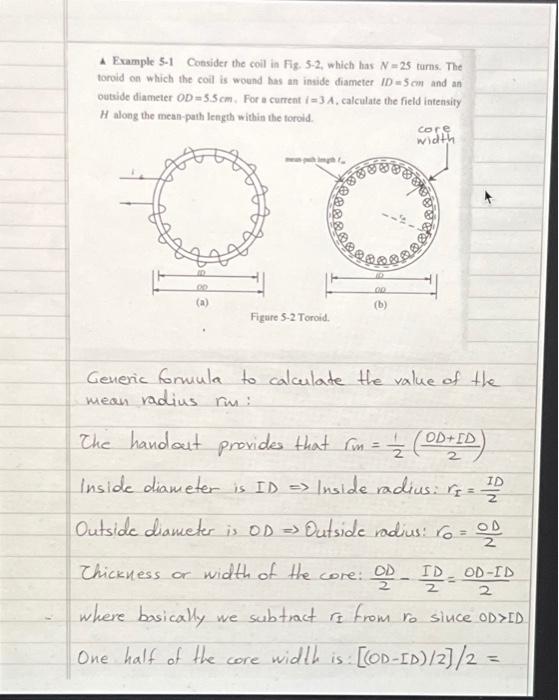 ▲ Example 5-1 Consider the coil in Fig. 5-2, which has N = 25 turns. The
toroid on which the coil is wound has an inside diameter ID = 5 cm and an
outside diameter OD = 5.5 cm. For a current i = 3 A, calculate the field intensity
H along the mean-path length within the toroid.
core
width
mean-path length lm
i
rm
ID
OD
(a)
ID
OD
(b)
Figure 5-2 Toroid.
Generic formula to calculate the value of the
mean radius rm:
The handout provides that rm = 1/2 (OD+ID/2)
Inside diameter is ID => Inside radius: rI = ID/2
Outside diameter is OD => Outside radius: ro = OD/2
Thickness or width of the core: OD/2 - ID/2 = OD-ID/2
where basically we subtract rI from ro since OD>ID
One half of the core width is: [(OD-ID)/2]/2 =